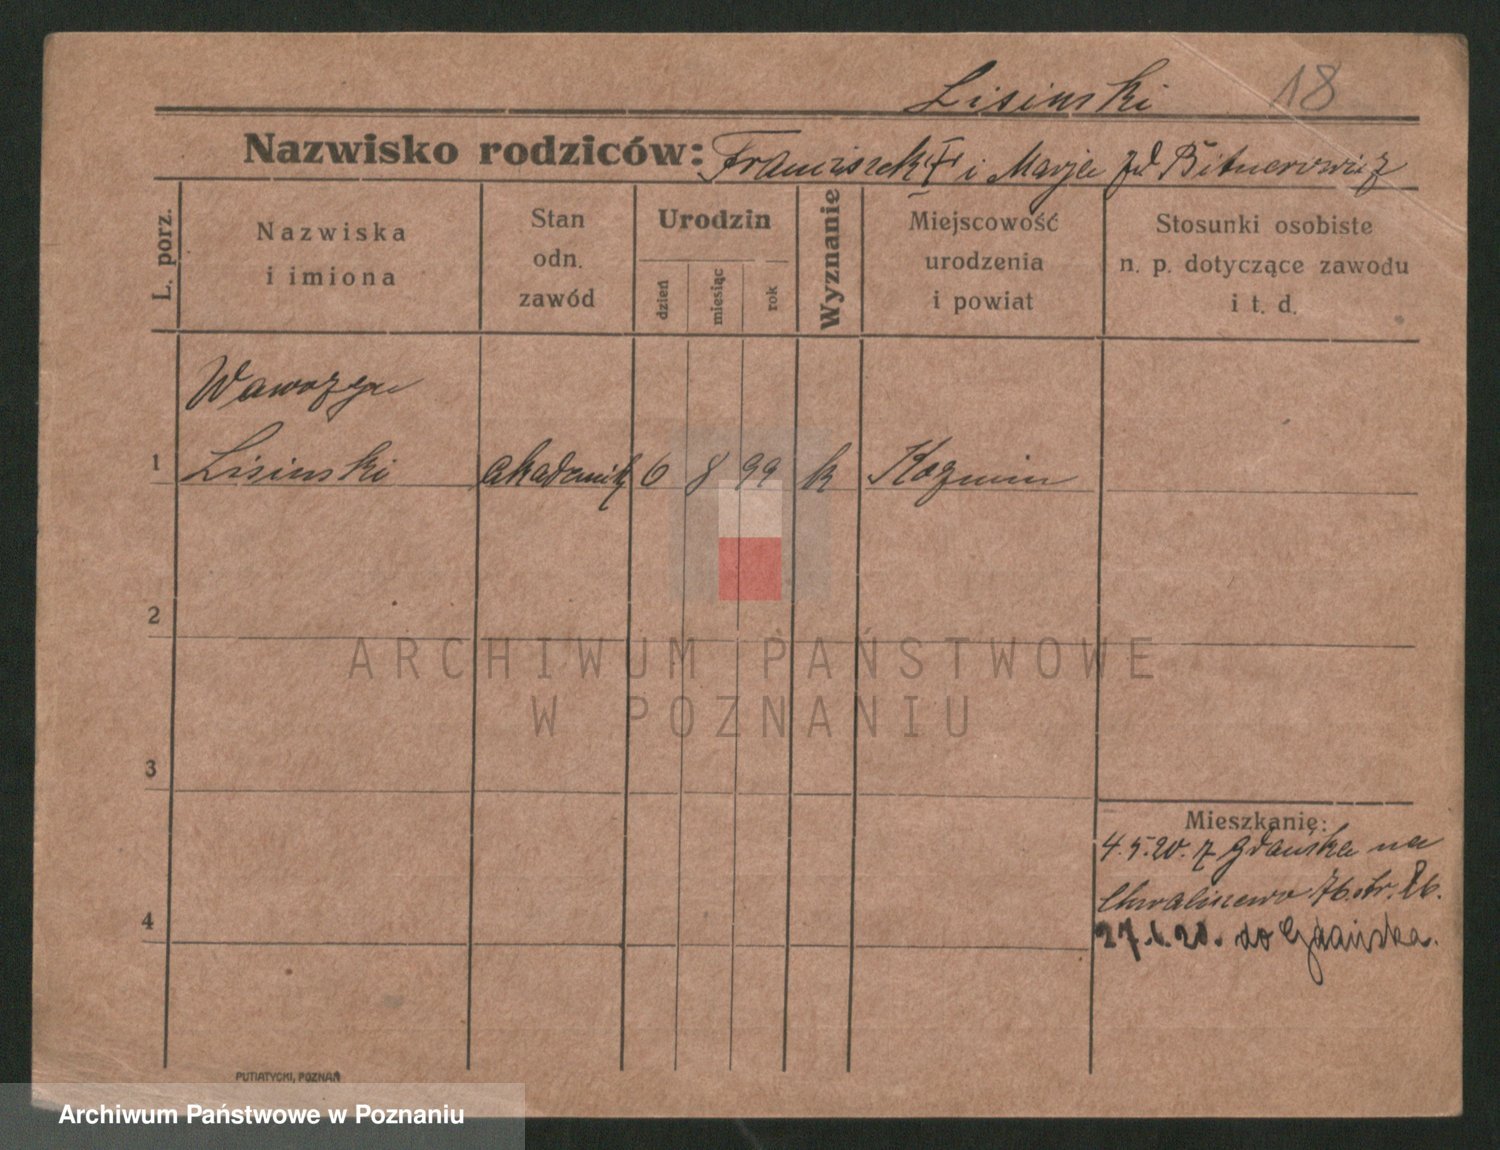 Lisinski 18
Nazwisko rodziców: Franciszek i Marja zd Bitnerowicz
L. porz.
Nazwiska
i imiona
Stan
odn.
zawód
Urodzin
dzień
miesiąc
rok
Wyznanie
Miejscowość
urodzenia
i powiat
Stosunki osobiste
n. p. dotyczące zawodu
i t. d.
Wawrzyn
1 Lisinski akademik 6 8 99 k Kozmin
2
ARCHIWUM PAŃSTWOWE
W POZNANIU
3
Mieszkanie:
4.5.20. z Gdańska na
Chwaliszewo 76. tr.
4
27. 20. do Gdańska.
PUTIATYCKI, POZNAŃ
Archiwum Państwowe w Poznaniu